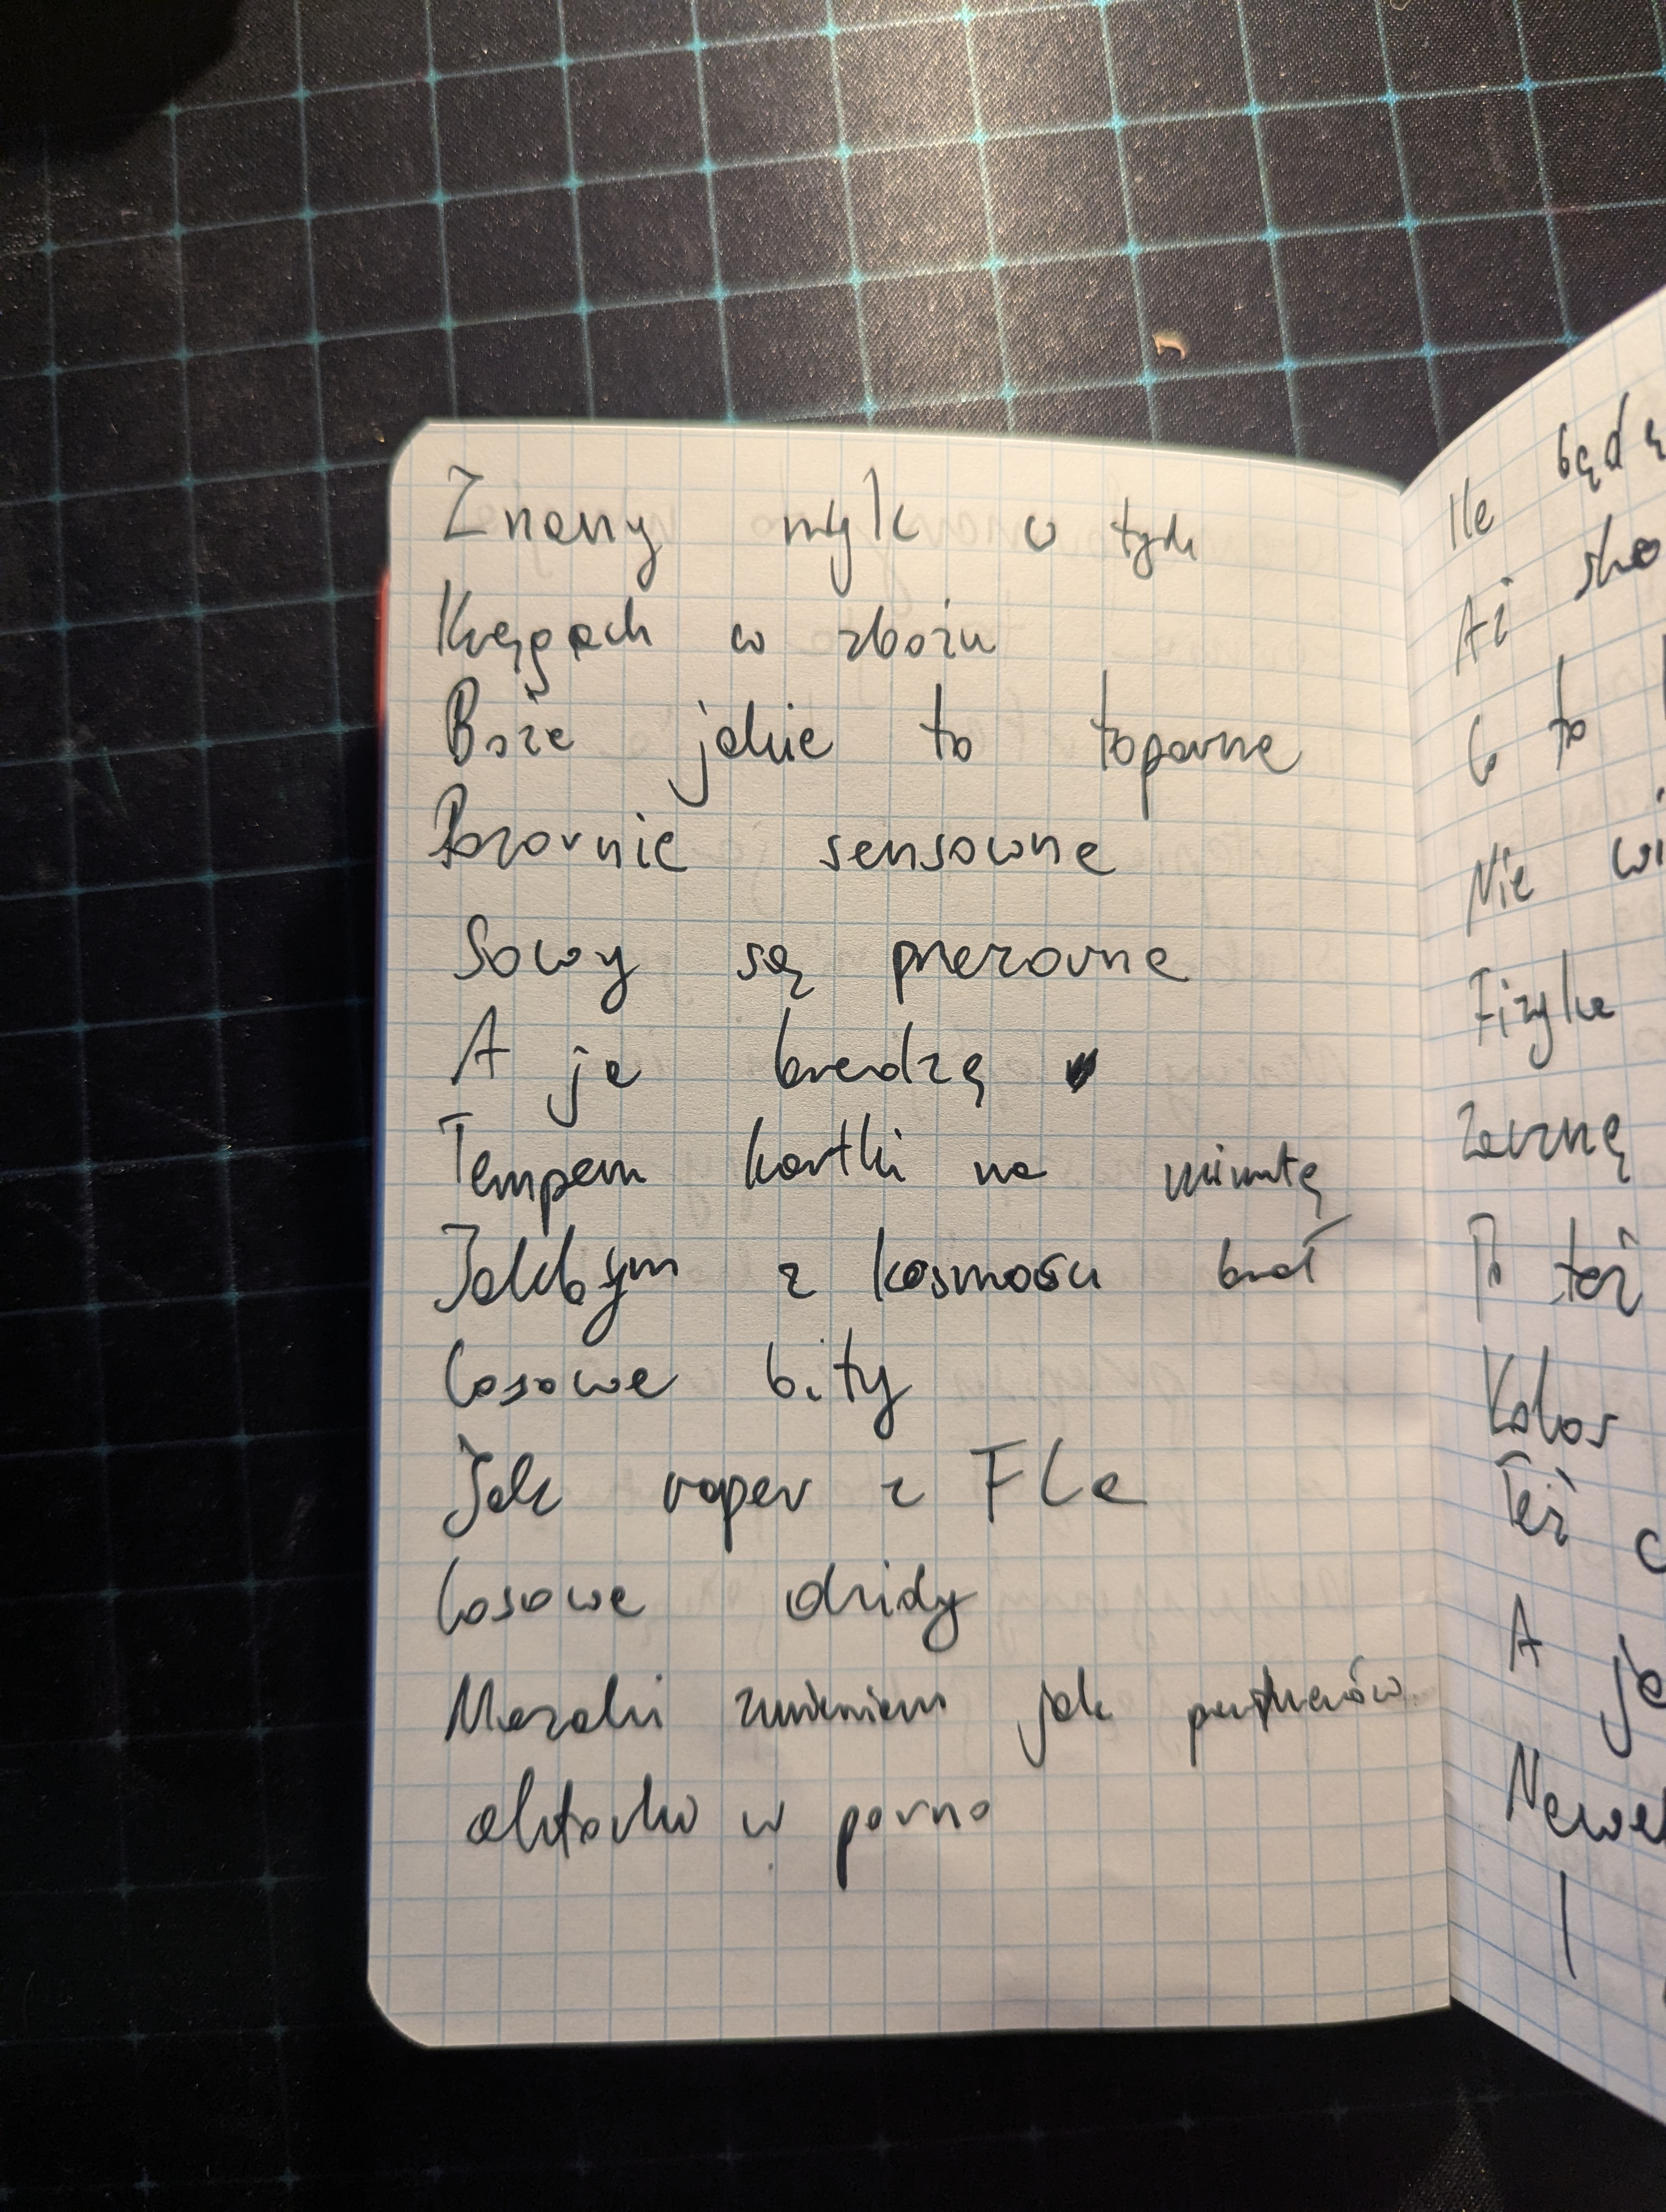 Znany myk o tych
Kręgach w zbożu
Boże jakie to toporne
Pozornie sensowne
Sowy są pierzorne
A ja bredzę
Tempem kartki na minutę
Jakbym z kosmosu brał
Losowe bity
Jak raper z FLa
Losowe
Maraki zmieniam jak partnerów
aktorka w porno
Ile będą
Aż
Co to
Nie
Fizyka
Zacznę
To też
Kolos
Też
A